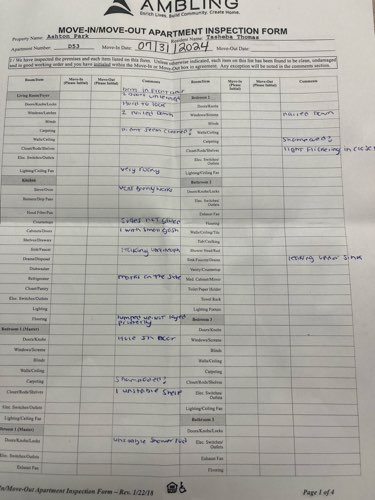 AMBLING
Enrich Lives. Build Community. Create Home.
MOVE-IN/MOVE-OUT APARTMENT INSPECTION FORM
Property Name: Ashton Park Resident Name: Tasheba Thomas
Apartment Number D53 Move-In Date: 07/31/2024 Move-Out Date:
We have inspected the premises and each item listed on this form. Unless otherwise indicated, each item on this list has been found to be clean, undamaged
and in good working order and you have initialed within the Move-In or Move-Out box in agreement. Any exception will be noted in the comments section.
Room/Item Move-In (Please Initial) Move-Out (Please Initial) Comments Room/Item Move-In (Please Initial) Move-Out (Please Initial) Comments
Living Room/Foyer Bedroom 2
Doors/Knobs/Locks Hard to lock Doors/Knobs
Windows/Latches 2 nailed down Windows/Screens nailed down
Blinds Blinds
Carpeting Walls/Ceiling
Walls/Ceiling Carpeting shampooed!
Closet/Rods/Shelves Closet/Rods/Shelves light flickering in closet
Elec. Switches/Outlets Elec. Switches/Outlets
Lighting/Ceiling Fan very rocky Lighting/Ceiling Fan
Kitchen Bathroom 2
Stove/Oven Doors/Knobs/Locks
Burners/Drip Pans Elec. Switches/Outlets
Hood Filter/Fan Exhaust Fan
Countertops Flooring
Cabinets/Doors Walls/Ceiling/Tile
Shelves/Drawers Tub/Caulking
Sink/Faucet leaking underneath Shower Head/Rod
Drains/Disposal Sink/Faucets/Drains leaking under sink
Dishwasher Vanity/Countertop
Refrigerator marks on the side Med. Cabinet/Mirror
Closet/Pantry Toilet/Paper Holder
Elec. Switches/Outlets Towel Rack
Lighting Lighting Fixture
Flooring properly Bedroom 3
Bedroom 1 (Master) Doors/Knobs
Doors/Knobs Hole in door Windows/Screens
Windows/Screens Blinds
Blinds Walls/Ceiling
Walls/Ceiling Carpeting
Carpeting Shampooed! Closet/Rods/Shelves
Closet/Rods/Shelves 1 unstable shelf Elec. Switches/Outlets
Elec. Switches/Outlets Lighting/Ceiling Fan
Lighting/Ceiling Fan
(Master) Doors/Knobs/Locks
Doors/Knobs/Locks unstable shower rod Elec. Switches/Outlets
Elec. Switches/Outlets Exhaust Fan
Exhaust Fan Flooring
In/Move-Out Apartment Inspection Form – Rev. 1/22/18 Page 1 of 4